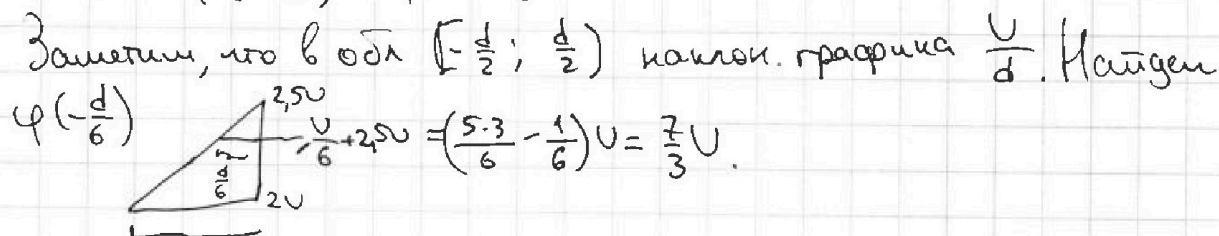 Заметим, что в обл [-d/2; d/2) наклон. графика U/d. Найдем
φ(-d/6) 2,5U -U/6+2,5U = (5·3/6 - 1/6)U = 7/3 U.
d/6
2U